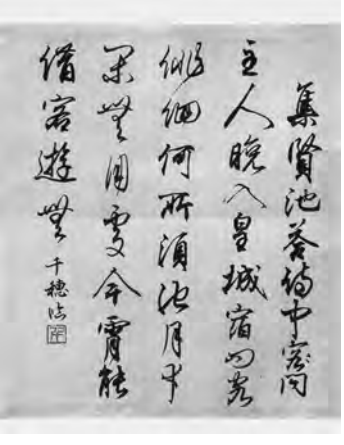 集賢池荅侍中客問
主人晚入皇城宿問客
俳佪何所須池月幸
閑無用處今宵能
借客遊無 千穗臨